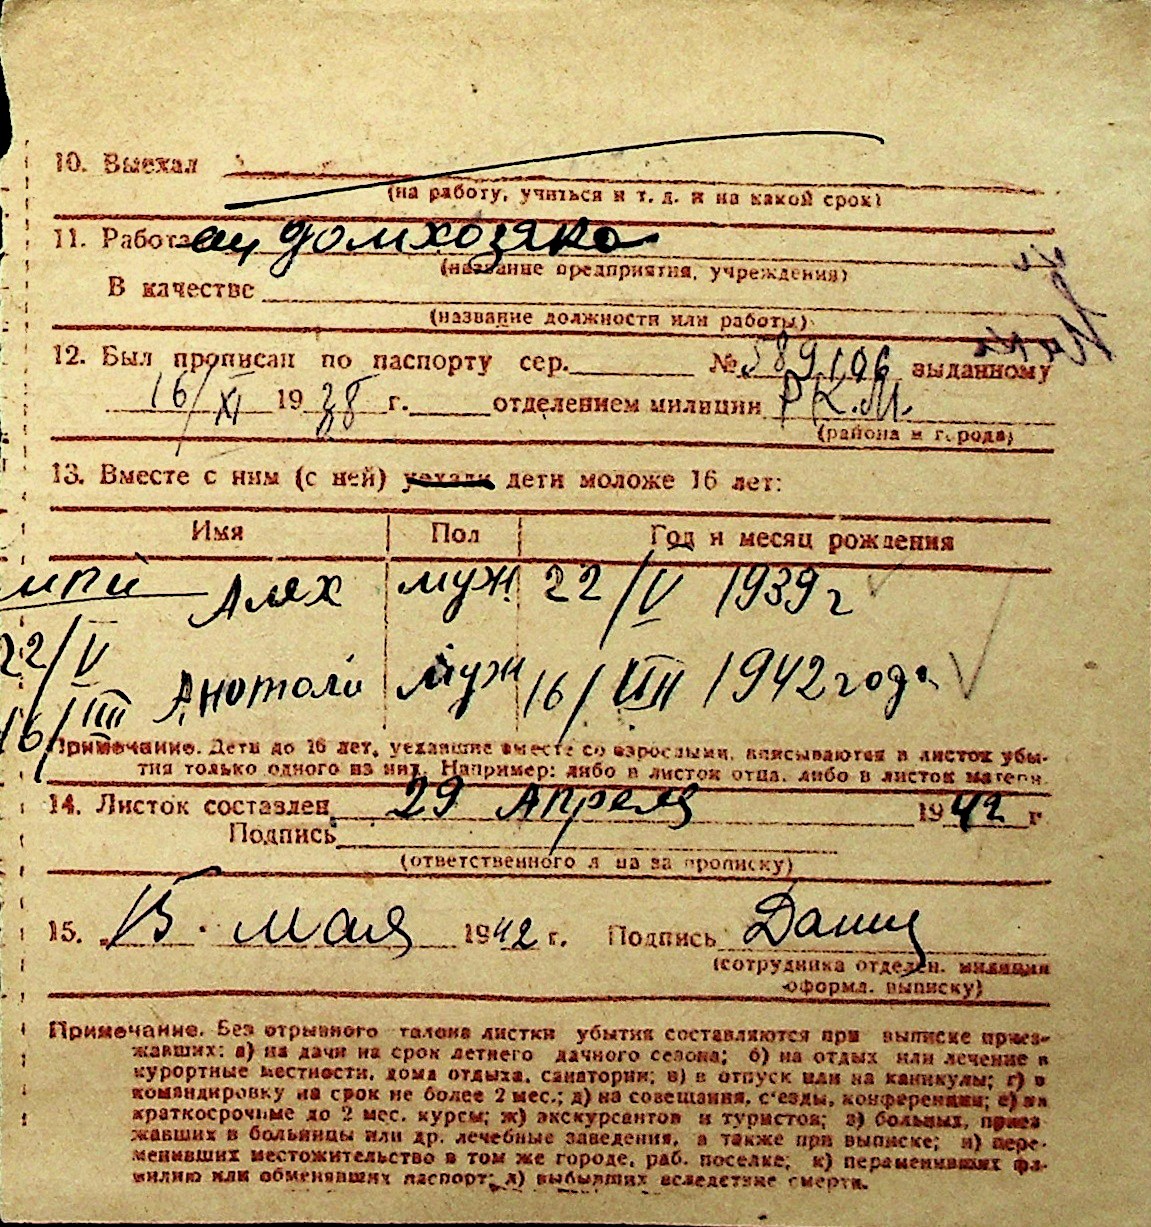 10. Выехал
(на работу, учиться и т. д. и на какой срок)
11. Работа домхозяйка
(название предприятия, учреждения)
В качестве
(название должности или работы)
12. Был прописан по паспорту сер. № 389106 выданному
16/XI 1938 г. отделением милиции Р.К.М.
(района и города)
13. Вместе с ним (с ней) уехали дети моложе 16 лет:
Имя Пол Год и месяц рождения
муж 22/V 1939 г
22/V
Анотоли муж 16/VIII 1942 года
16/VIII
Примечание. Дети до 16 лет, уехавшие вместе со взрослыми, вписываются в листок убы-
тия только одного из них. Например: либо в листок отца, либо в листок матери.
14. Листок составлен 29 Апреля 1942 г
Подпись
(ответственного лица за прописку)
15. 15. мая 1942 г. Подпись
(сотрудника отделен. милиции
оформл. выписку)
Примечание. Без отрывного талона листки убытия составляются при выписке приез-
жавших: а) на дачи на срок летнего дачного сезона; б) на отдых или лечение в
курортные местности, дома отдыха, санатории; в) в отпуск или на каникулы; г) в
командировку на срок не более 2 мес.; д) на совещания, съезды, конференции; е) на
краткосрочные до 2 мес. курсы; ж) экскурсантов и туристов; з) больных, приез
жавших в больницы или др. лечебные заведения, а также при выписке; и) пере-
менивших местожительство в том же городе, раб. поселке; к) переменивших фа-
милию или обменявших паспорт; л) выбывших вследствие смерти.